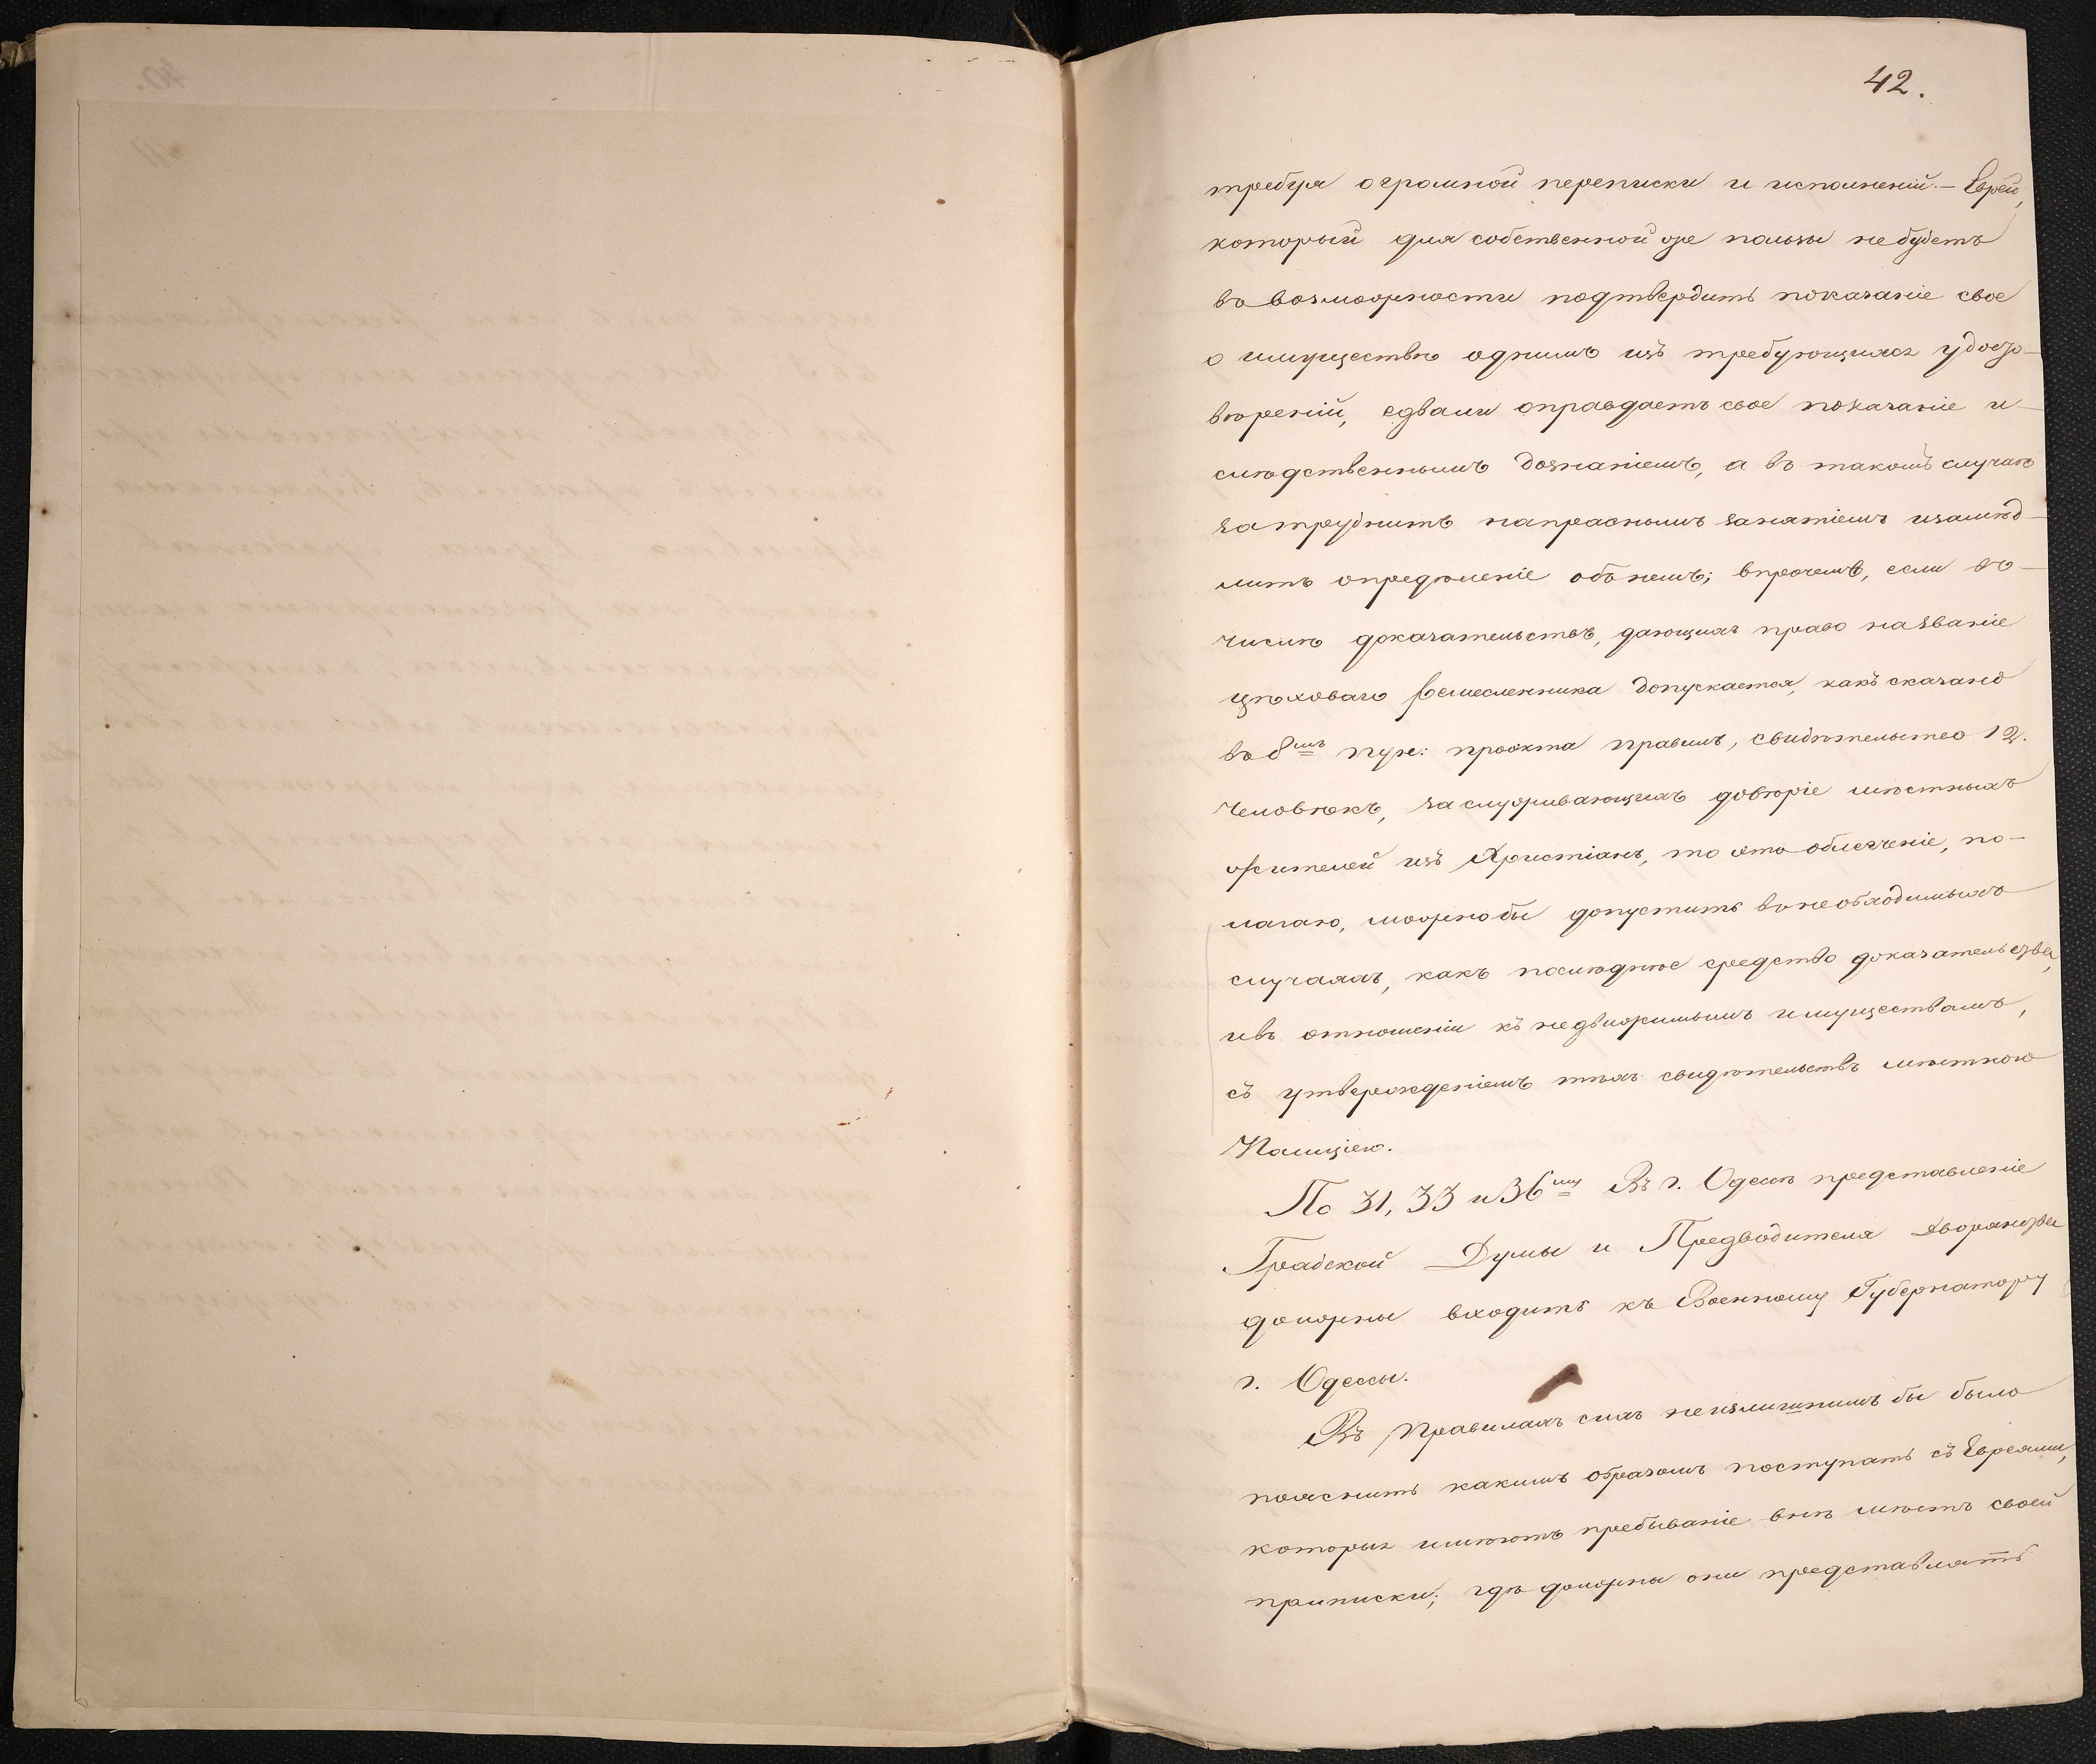 42.
требуя огромной переписки и исполненій. – Еврей,
который для собственной же пользы не будетъ
въ возможности подтвердить показаніе свое
о имуществѣ однимъ изъ требующихся удосто-
вѣреній, едвали оправдаетъ свое показаніе и
слѣдственнымъ дознаніемъ, а въ такомъ случаѣ
затруднитъ напраснымъ занятіемъ и замѣд-
литъ опредѣленіе объ немъ; впрочемъ, если въ
числѣ доказательствъ, дающихъ право на званіе
цѣховаго ремесленника допускается, какъ сказано
въ 8мъ пунк: проэкта правилъ, свидѣтельство 12.
человѣкъ, заслуживающихъ довѣріе мѣстныхъ
жителей изъ Христіанъ, то это облегченіе, по-
лагаю, можно бы допустить въ необходимыхъ
случаяхъ, какъ послѣднее средство доказательства,
и въ отношеніи къ недвижимымъ имуществамъ,
съ утвержденіемъ тѣхъ свидѣтельствъ мѣстною
Полиціею.
По 31, 33 и 36му Въ г. Одессѣ представленіе
Градской Думы и Предводителя Дворянства
должны входить къ Военному Губернатору
г. Одессы.
Въ Правилахъ сихъ неизлишнимъ бы было
пояснить какимъ образомъ поступать съ Евреями,
которые имѣютъ пребываніе внѣ мѣстъ своей
приписки; гдѣ должны они представлять